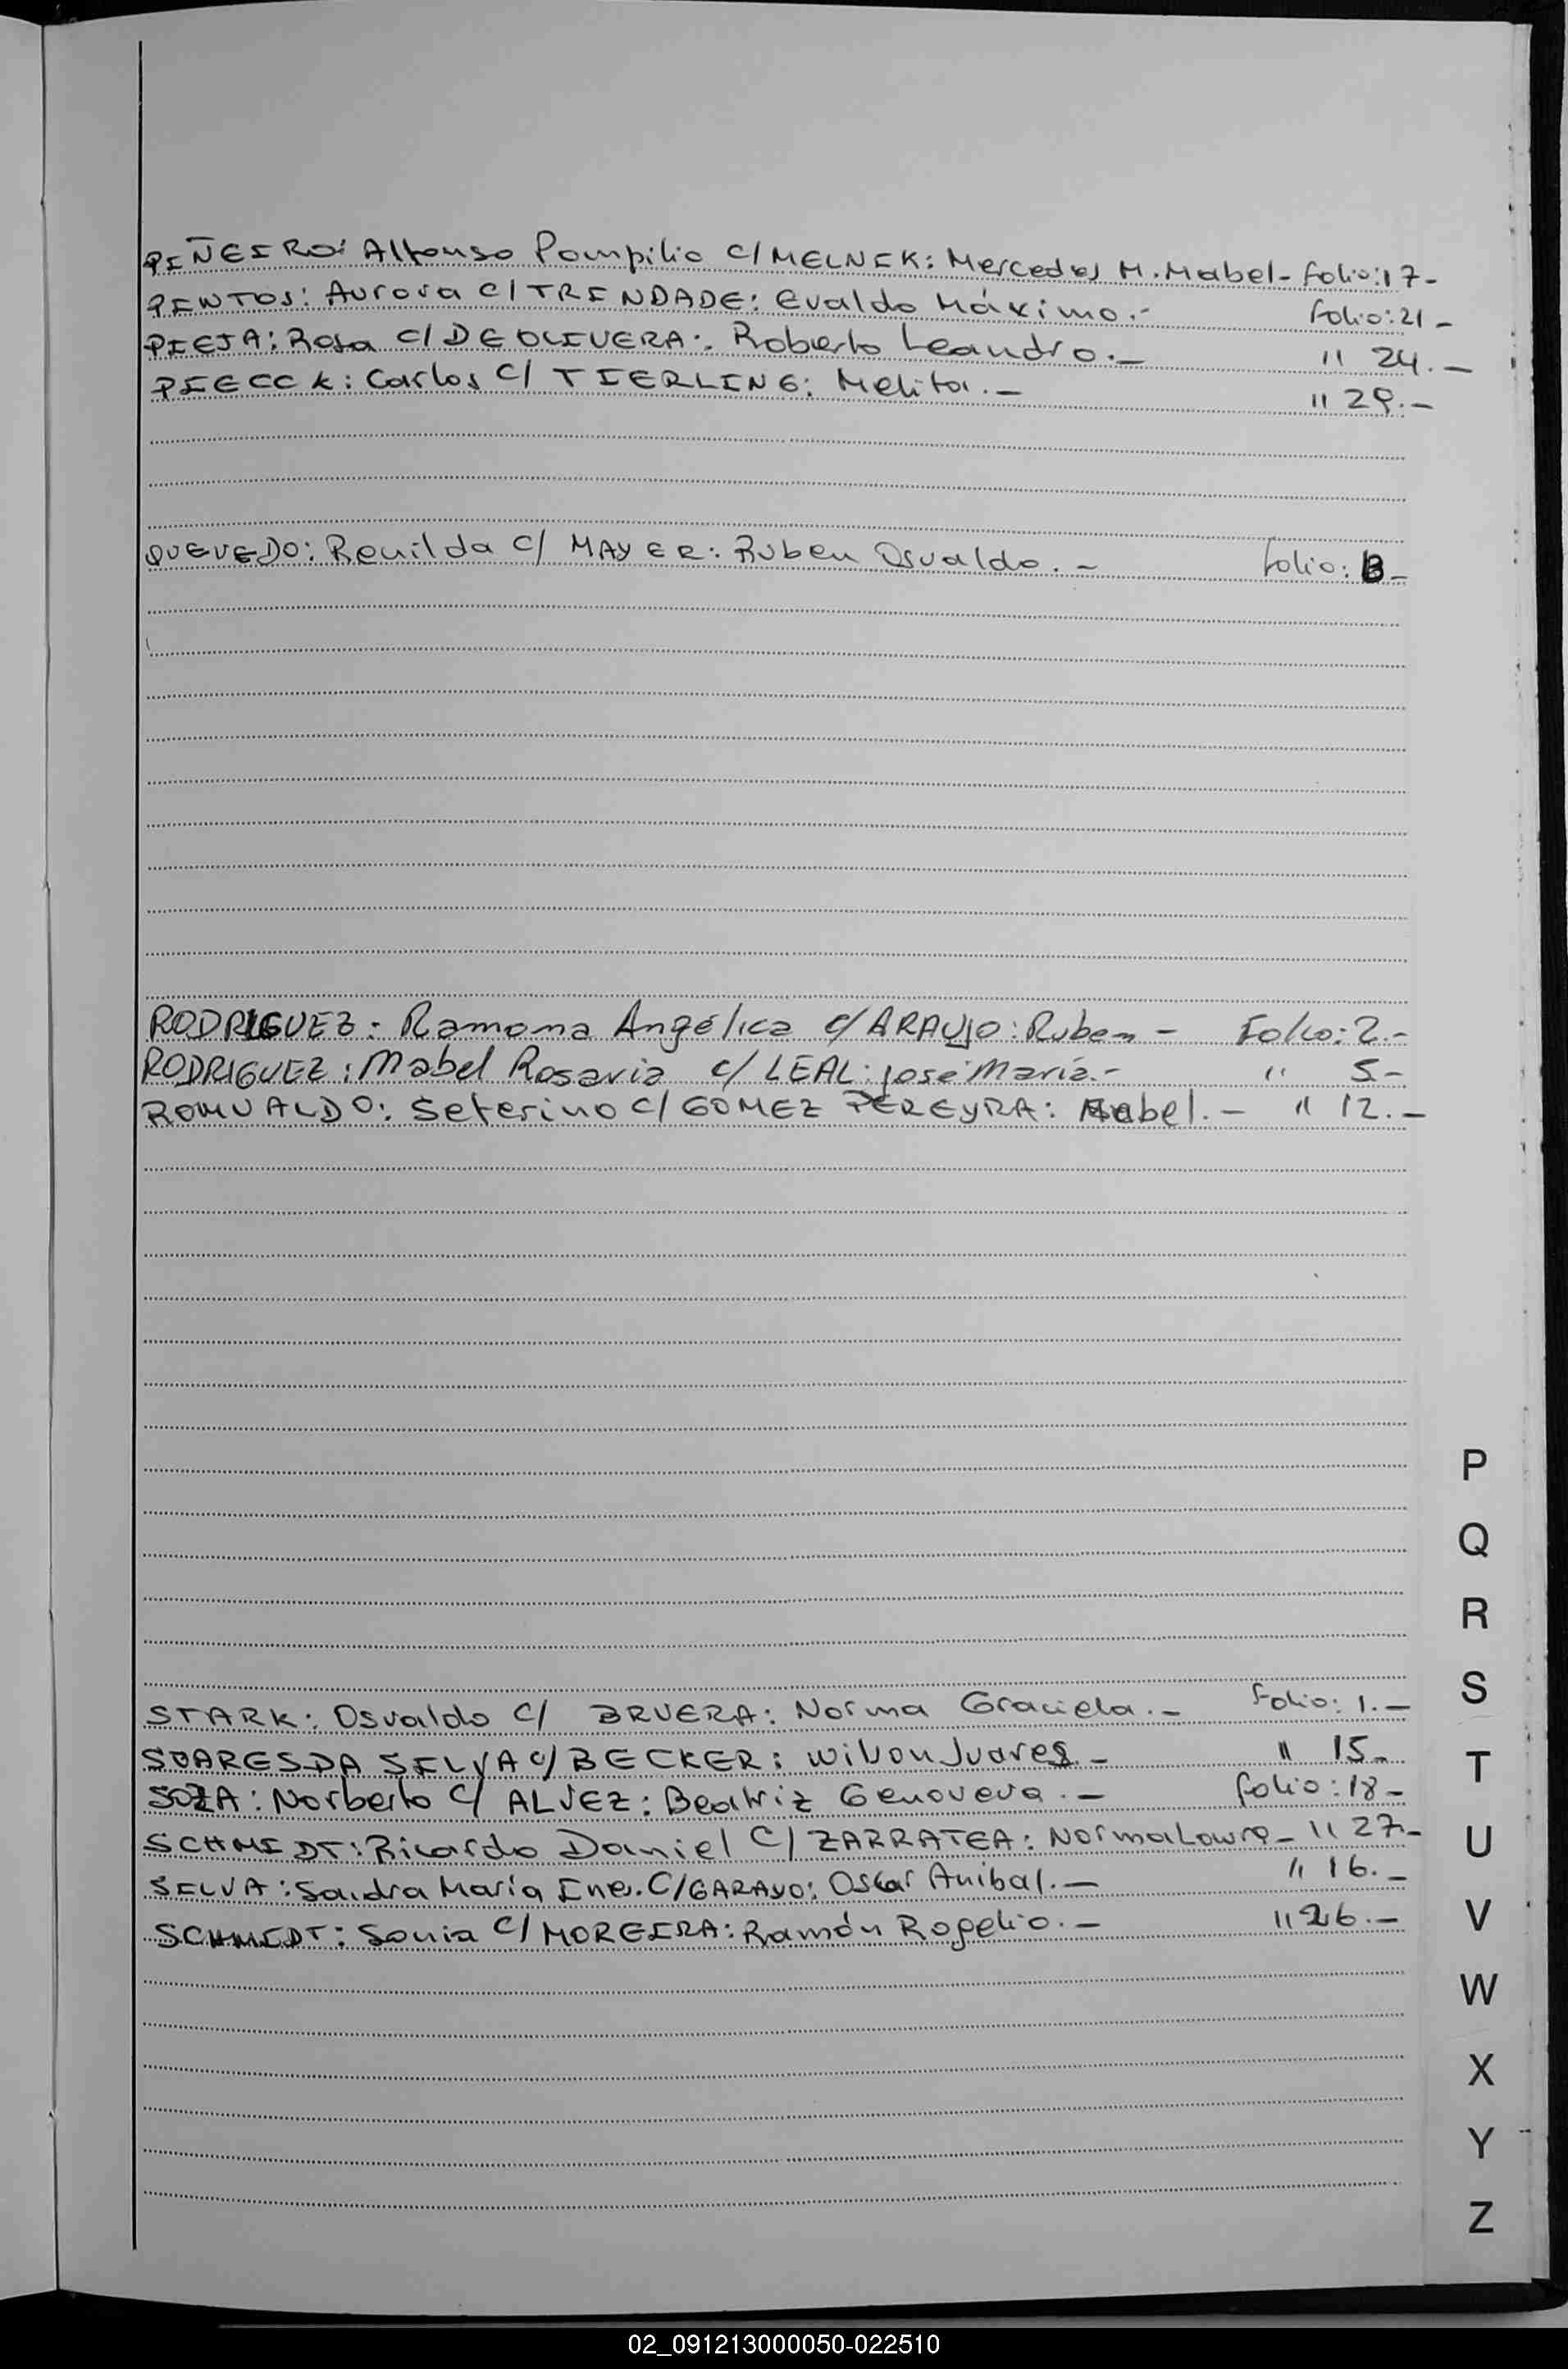 PIÑEIRO: Alfonso Pompilio C/ MELNIK: Mercedes M. Mabel - folio: 17 -
PINTOS: Aurora C/ TRINDADE: Evaldo Máximo.- folio: 21 -
PIEJA: Rosa C/ DE OLIVERA: Roberto Leandro.- " 24.-
PIECCK: Carlos C/ TIERLING: Melita.- " 29.-
QUEVEDO: Renilda C/ MAYER: Ruben Osvaldo.- folio: 13 -
RODRIGUEZ: Ramona Angélica c/ ARAUJO: Ruben - Folio: 2.-
RODRIGUEZ: Mabel Rosaria c/ LEAL: José María.- " 5 -
ROMUALDO: Seterino C/ GOMEZ PEREYRA: Mabel.- " 12.-
STARK: Osvaldo C/ BRUERA: Norma Graciela.- folio: 1.-
SOARES DA SILVA C/ BECKER: Wilson Juares - " 15 -
SOZA: Norberto C/ ALVEZ: Beatriz Genoveva.- folio: 18 -
SCHMIDT: Ricardo Daniel C/ ZARRATEA: Norma Laura - " 27 -
SILVA: Sandra María Ines. C/ GARAYO: Oscar Anibal.- " 16.-
SCHMIDT: Sonia C/ MOREIRA: Ramón Rogelio.- " 26.-
P
Q
R
S
T
U
V
W
X
Y
Z
02_091213000050-022510